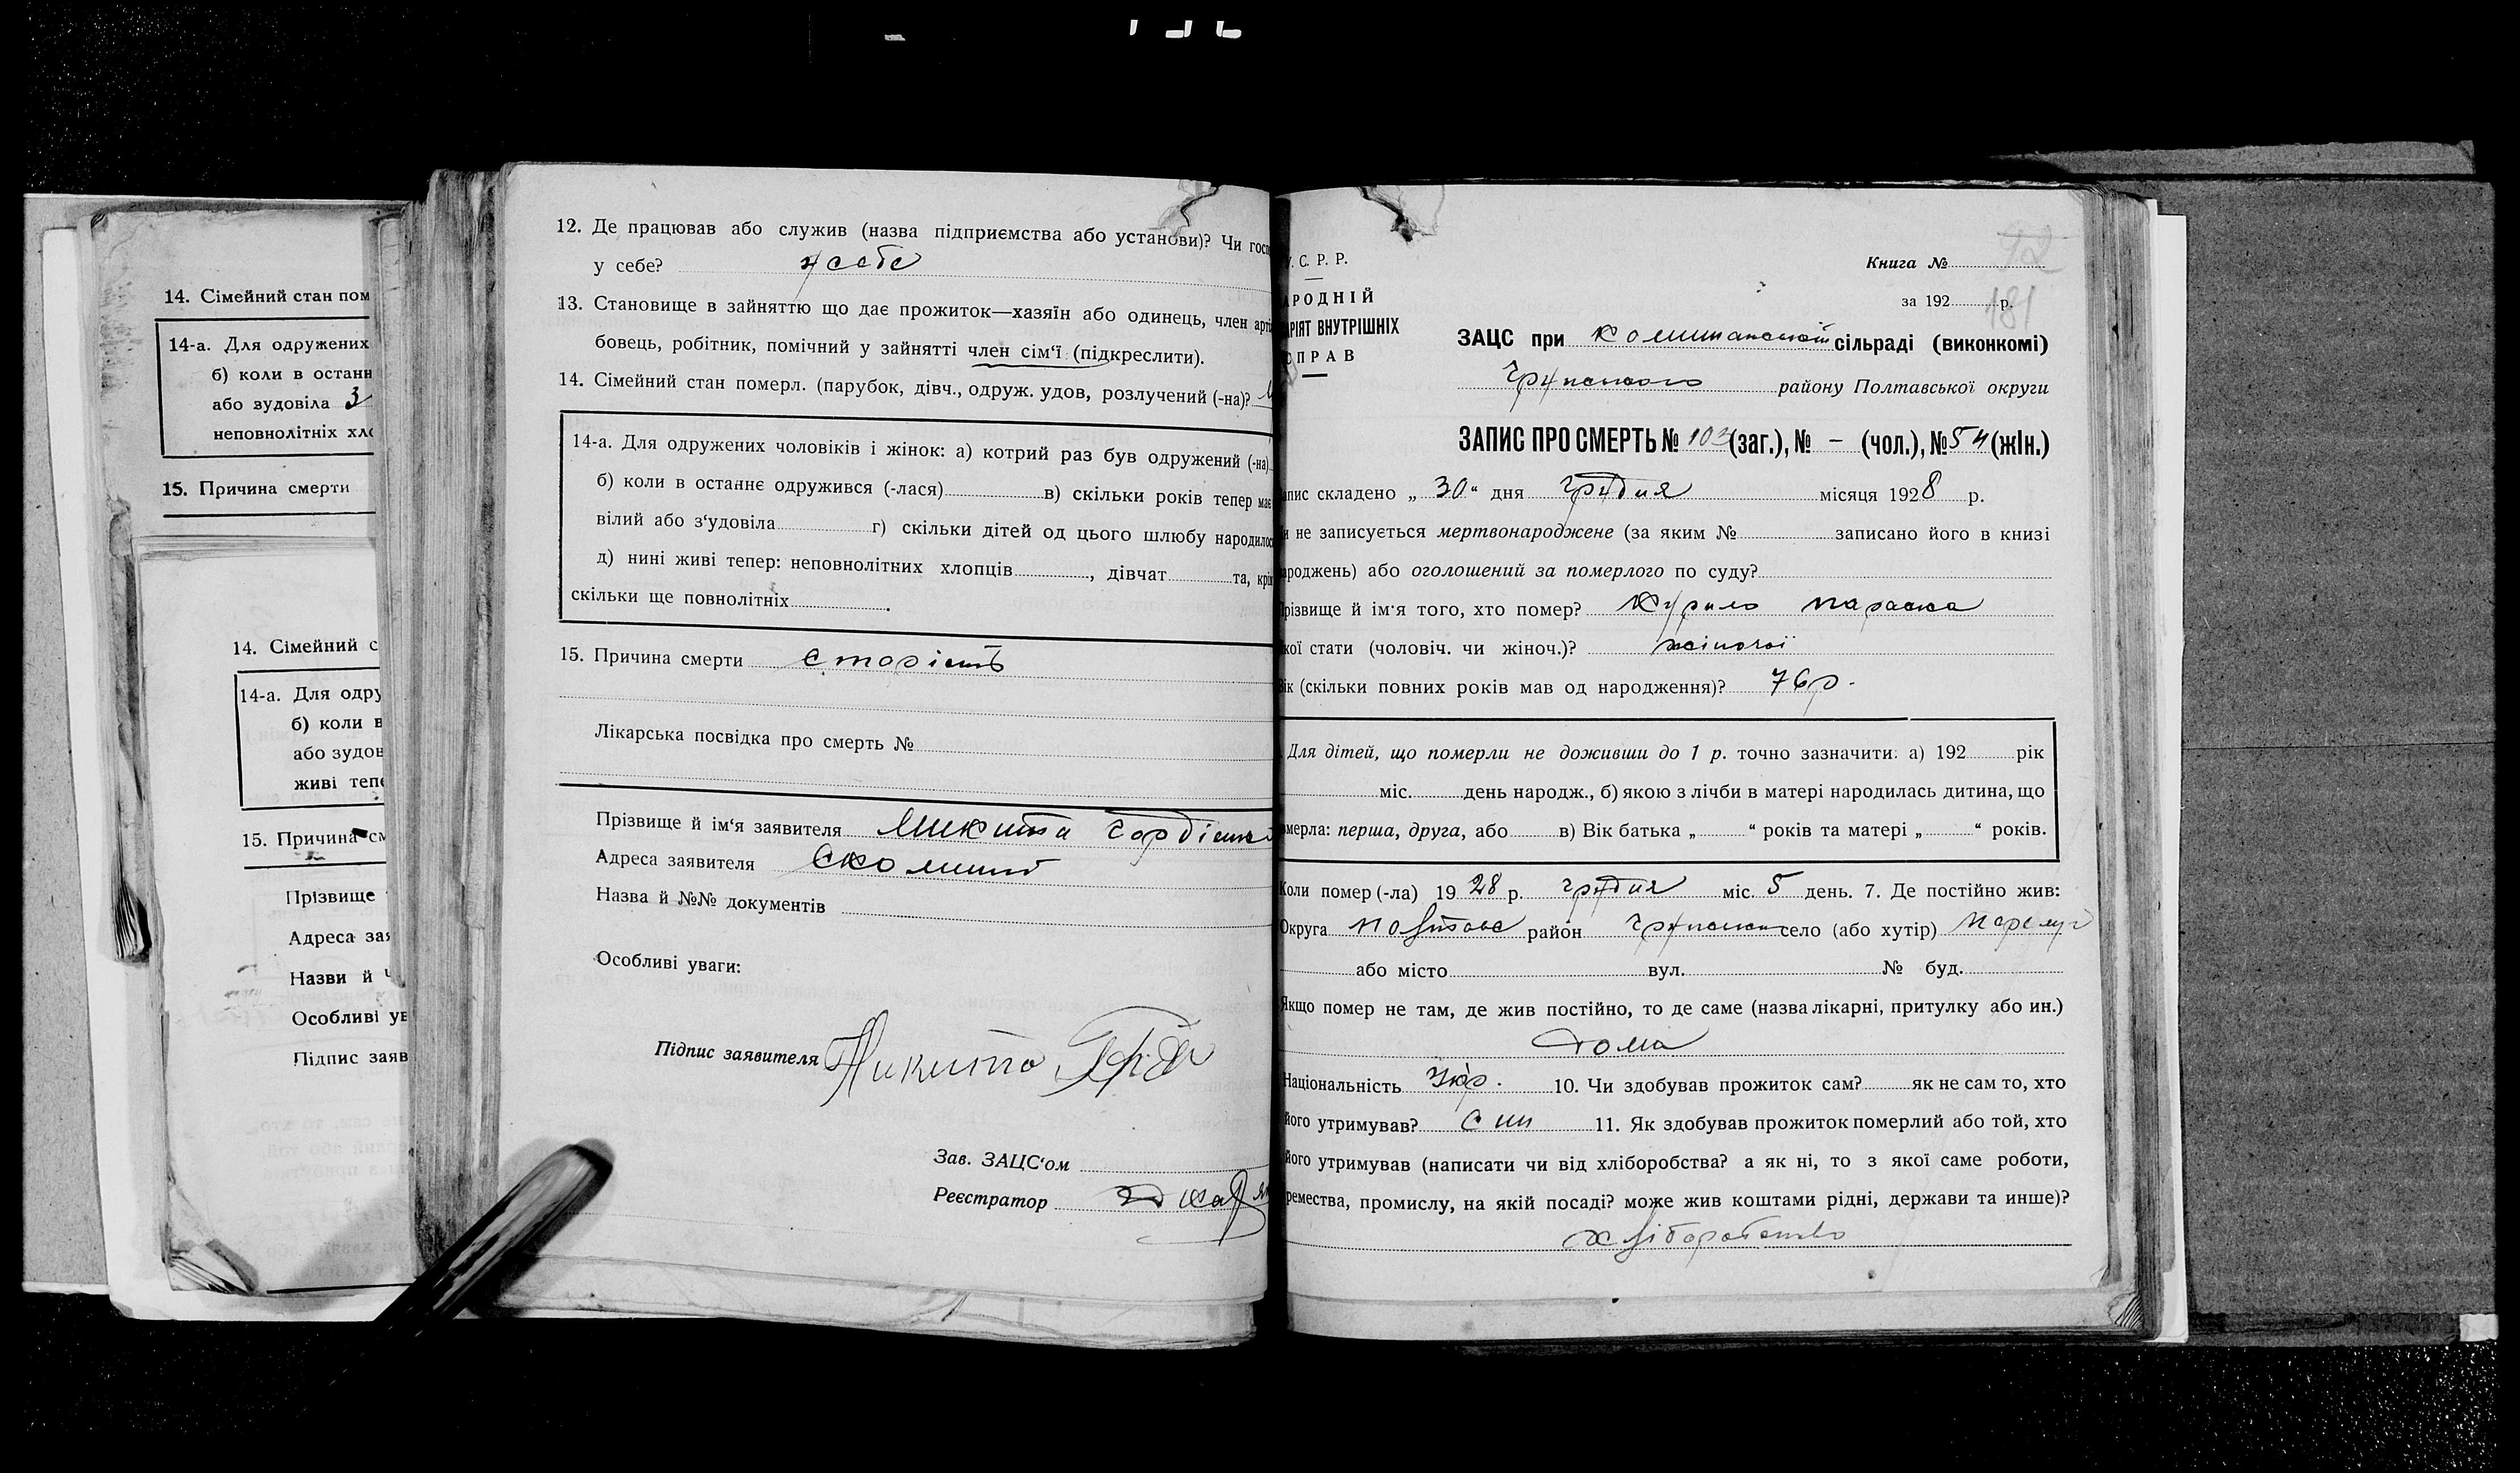 14. Сімейний стан пом
14-а. Для одружених
б) коли в останн
або зудовіла З
неповнолітніх хло
15. Причина смерти
14. Сімейний с
14-а. Для одру
б) коли в
або зудов
живі тепе
15. Причина см
Прізвище
Адреса зая
Назви й
Особливі ув
Підпис заяв
12. Де працював або служив (назва підприємства або установи)? Чи госп
у себе? у себе
13. Становище в зайняттю що дає прожиток—хазяїн або одинець, член арті
бовець, робітник, помічний у зайнятті член сім‘ї (підкреслити).
14. Сімейний стан померл. (парубок, дівч., одруж. удов, розлучений (-на)?
14-а. Для одружених чоловіків і жінок: а) котрий раз був одружений (-на)
б) коли в останнє одружився (-лася) в) скільки років тепер має
вілий або з‘удовіла г) скільки дітей од цього шлюбу народилос
д) нині живі тепер: неповнолітних хлопців , дівчат та, крім
скільки ще повнолітніх .
15. Причина смерти старість
Лікарська посвідка про смерть №
Прізвище й ім‘я заявителя Микита Гордієнк
Адреса заявителя
Назва й №№ документів
Особливі уваги:
Підпис заявителя Никита
Зав. ЗАЦС‘ом
Реєстратор
У. С. Р. Р.
АРОДНІЙ
АРІЯТ ВНУТРІШНІХ
СПРАВ
92
Книга №
за 192 р.
181
ЗАЦС при сільраді (виконкомі)
Грунського району Полтавської округи
ЗАПИС ПРО СМЕРТЬ № 103 (заг.), № – (чол.), № 54 (жін.)
апис складено „ 30 “ дня грудня місяця 1928 р.
и не записується мертвонароджене (за яким № записано його в книзі
ароджень) або оголошений за померлого по суду?
різвище й ім‘я того, хто помер? Курило Параска
кої стати (чоловіч. чи жіноч.)? жіночої
ік (скільки повних років мав од народження)? 76 р.
Для дітей, що померли не доживши до 1 р. точно зазначити: а) 192 рік
міс. день народж., б) якою з лічби в матері народилась дитина, що
мерла: перша, друга, або в) Вік батька „ “ років та матері „ “ років.
Коли помер (-ла) 1928 р. грудня міс. 5 день. 7. Де постійно жив:
Округа Полтава район Грунськ село (або хутір)
або місто вул. № буд.
Якщо помер не там, де жив постійно, то де саме (назва лікарні, притулку або ин.)
дома
Національність Укр. 10. Чи здобував прожиток сам? як не сам то, хто
його утримував? син 11. Як здобував прожиток померлий або той, хто
його утримував (написати чи від хліборобства? а як ні, то з якої саме роботи,
ремества, промислу, на якій посаді? може жив коштами рідні, держави та инше)?
хліборобство